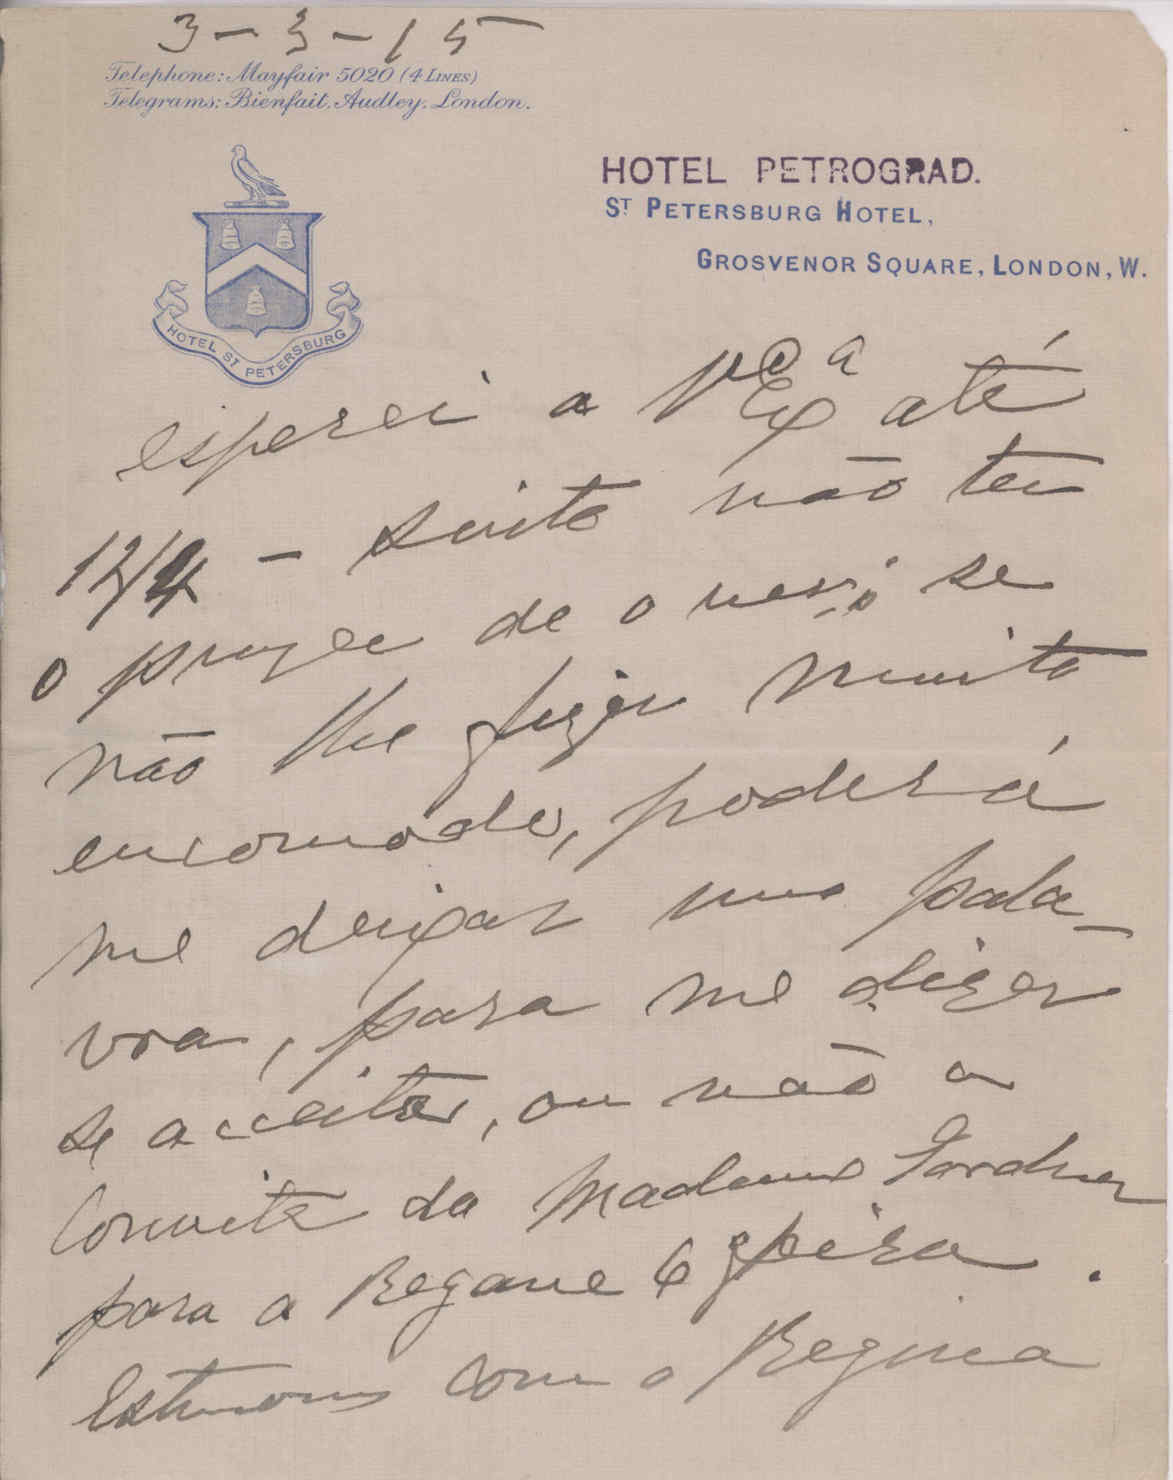 3-3-15
Telephone: Mayfair 5020 (4 LINES)
Telegrams: Bienfait, Audley, London.
HOTEL PETROGRAD.
ST PETERSBURG HOTEL,
GROSVENOR SQUARE, LONDON, W.
HOTEL ST PETERSBURG
esperei a V Exª até
12/4 - sinto não ter
o prazer de o ver; se
não lhe fizer muito
encomodo, poderá
me deixar uma pala-
vra, para me dizer
se aceita, ou não o
convite da Madame Gardner
para a 6ª feira.
Estivemos com o Regina